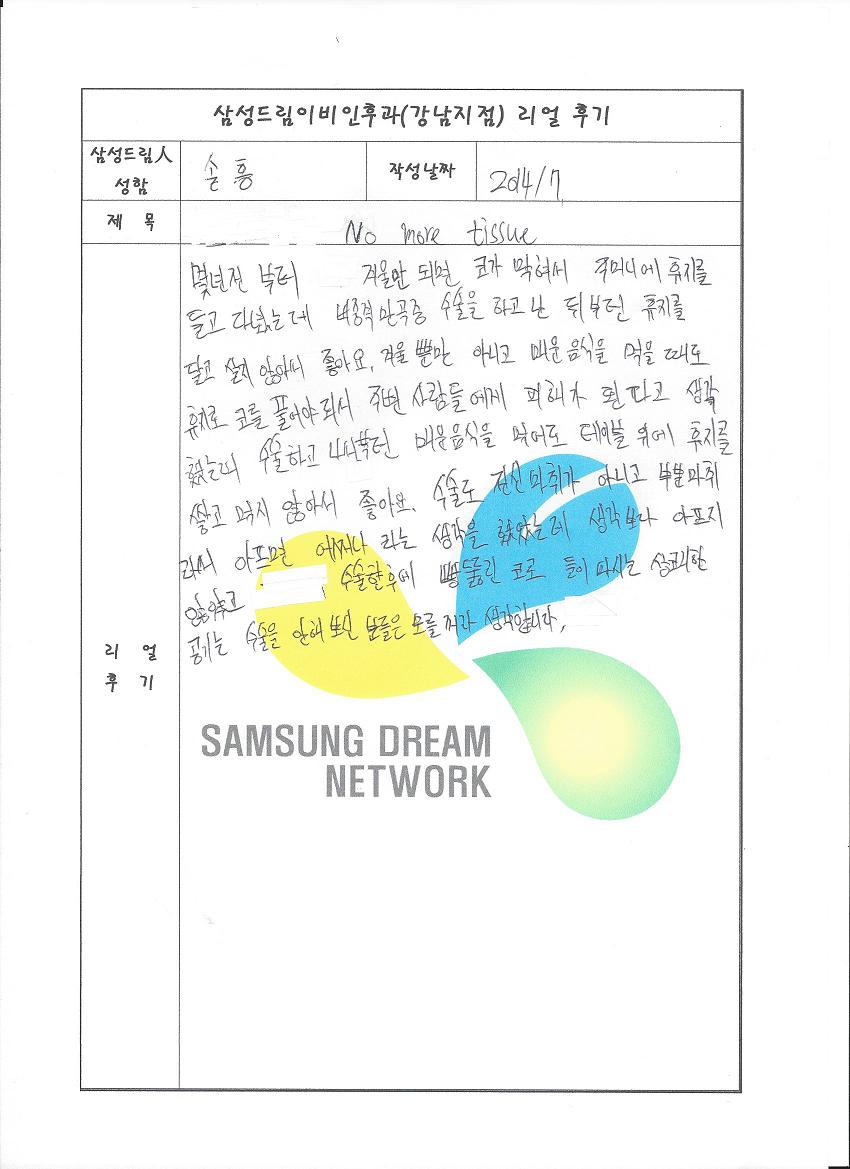 삼성드림이비인후과(강남지점) 리얼 후기
삼성드림人
성함
손 흥
작성날짜
2014/7
제 목
No more tissue
몇년전 부터 겨울만 되면 코가 막혀서 주머니에 휴지를
들고 다녔는데 비중격 만곡증 수술을 하고 난 뒤부턴 휴지를
달고 살지 않아서 좋아요. 겨울 뿐만 아니고 매운 음식을 먹을 때도
휴지로 코를 풀어야 되서 주변 사람들에게 피해가 된다고 생각
했는데 수술하고 나서부턴 매운음식을 먹어도 테이블 위에 휴지를
쌓고 먹지 않아서 좋아요. 수술도 전신마취가 아니고 부분마취
라서 아프면 어쩌나 라는 생각을 했었는데 생각보다 아프지
않았고 수술한후에 뻥뚫린 코로 들이마시는 상쾌한
공기는 수술을 안해 보신 분들은 모를꺼라 생각합니다.
리 얼
후 기
SAMSUNG DREAM
NETWORK